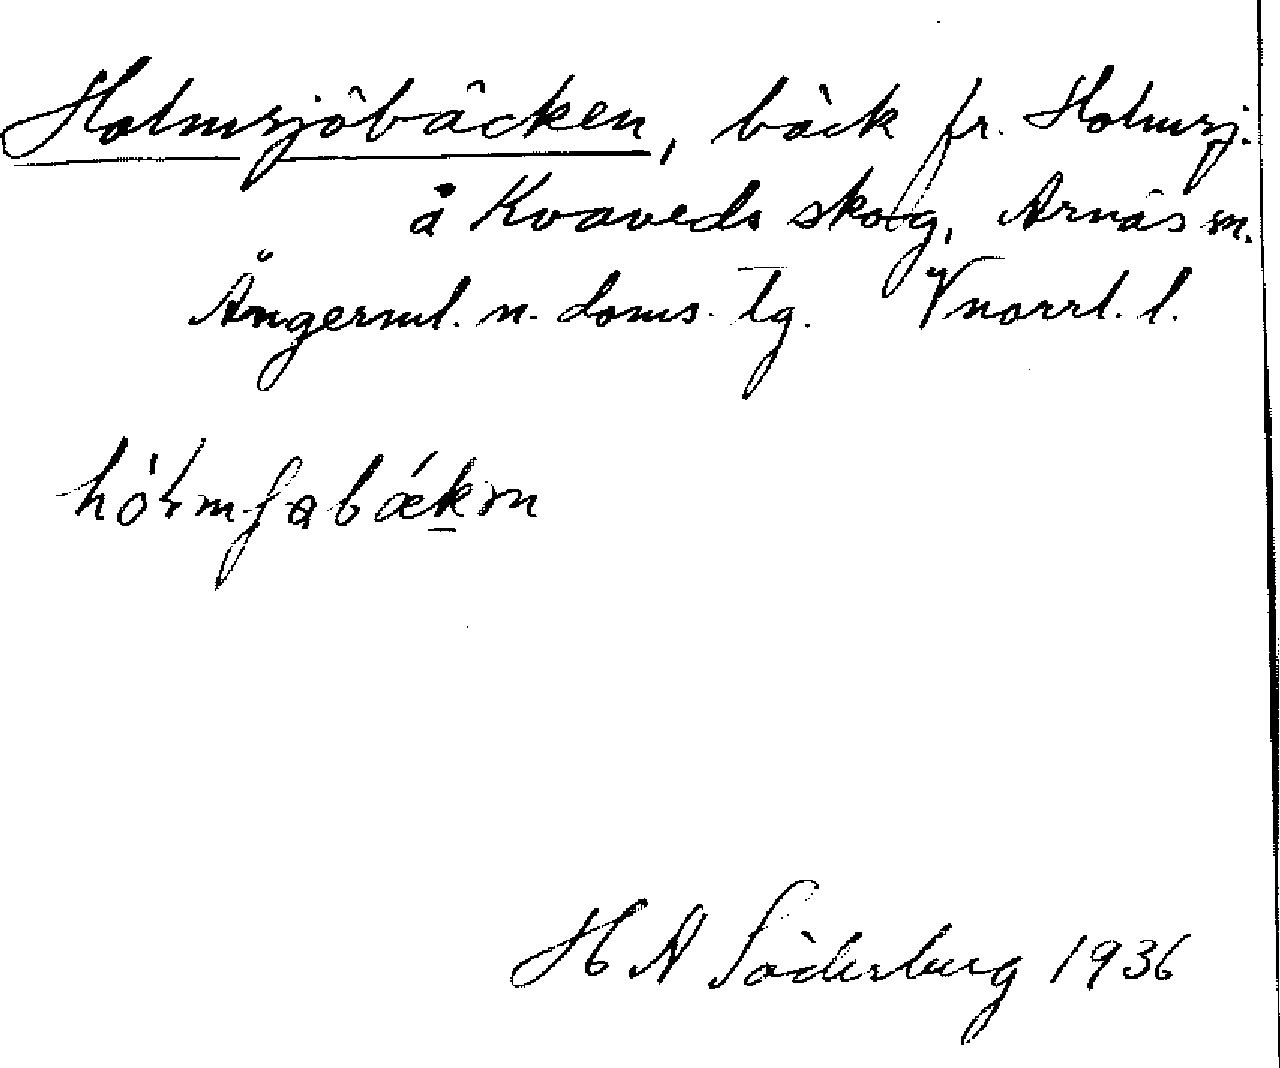 Holmsjöbäcken, bäck fr. Holmsj.
å Kvaveds skog, Arnäs sn.
Ångerml. n. doms. tg. Vnorrl. l.
H A Söderberg 1936